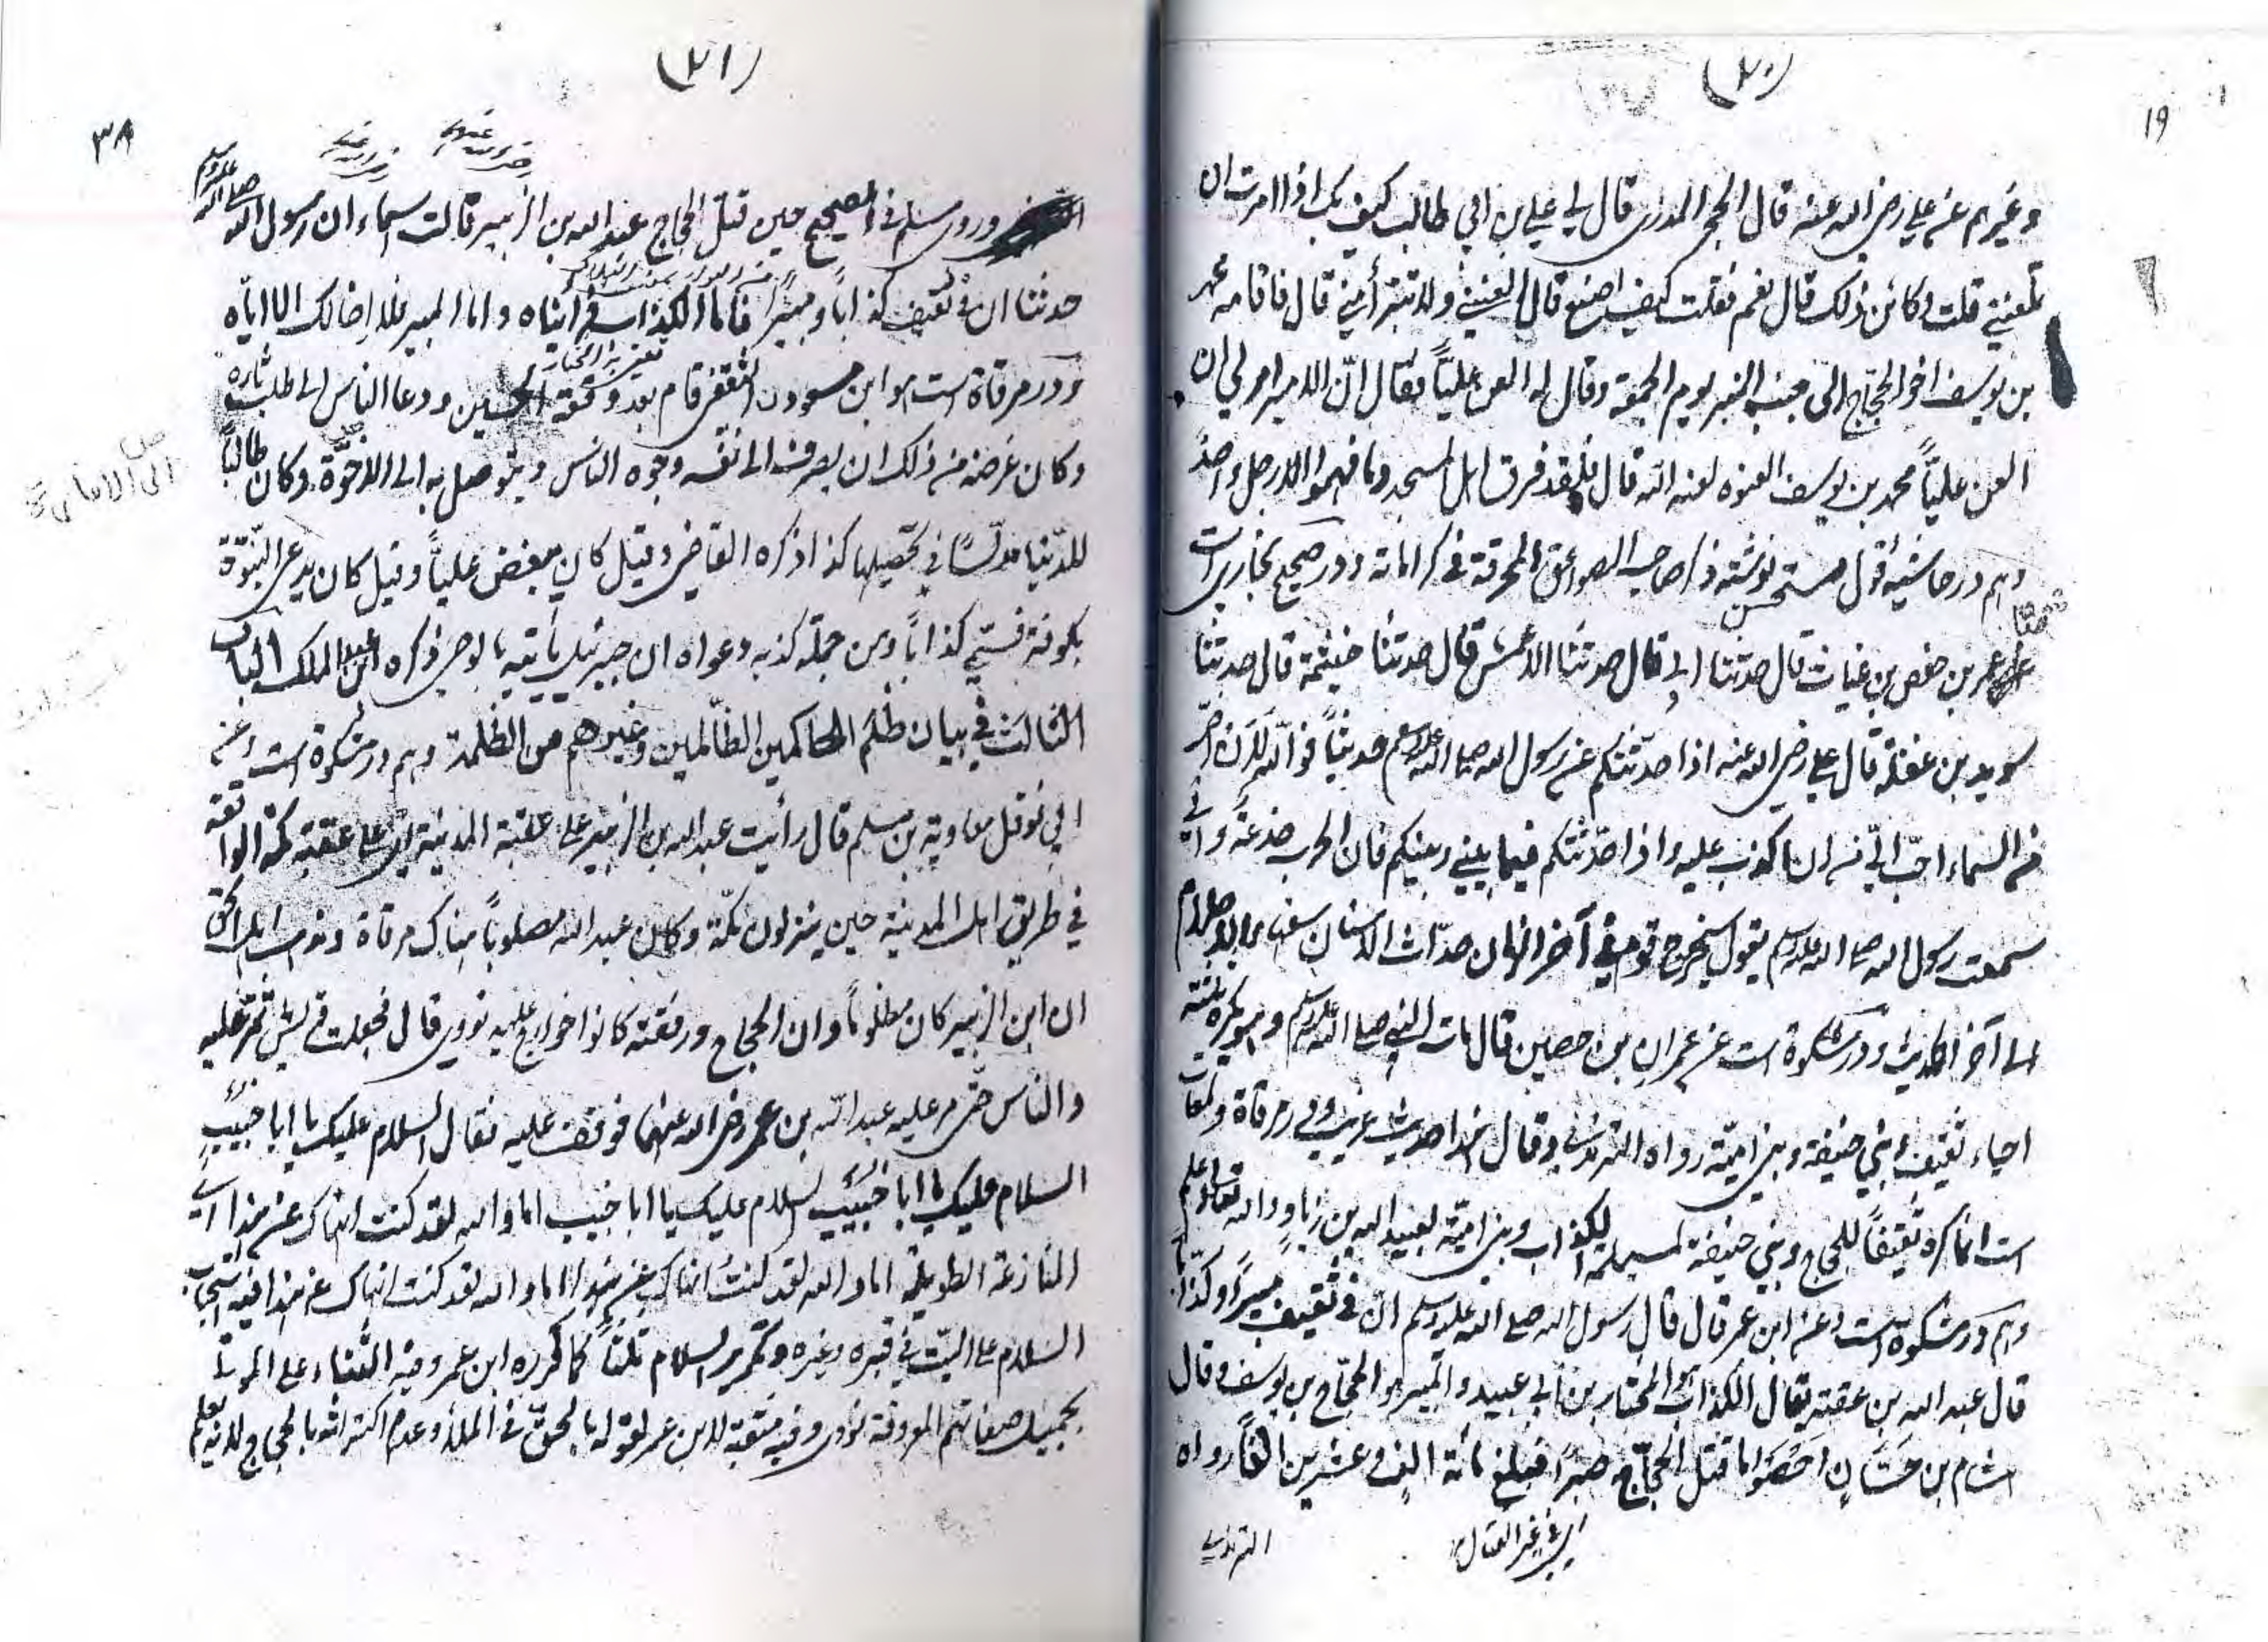 (٢٠)
19
وغيرهم عن علي رضي الله عنه قال الحجر المدري قال لي علي بن ابي طالب كيف بك اذا امرت ان
تلعنني قلت وكائن ذلك قال نعم فقلت كيف اصنع قال العنني ولا تتبرأ مني قال فاقامه محمد
بن يوسف اخو الحجاج الى جنب المنبر يوم الجمعة وقال له العن علياً فقال انّ الامير امرني ان
العن علياً محمد بن يوسف العنوه لعنه الله قال فلقد فرق اهل المسجد وما فهموا الا رجل واحد
وهم در حاشيه اقول مستحسن نوشته ذكر صاحب الصواعق المحرقة في كراماته ودر صحيح بخاري است
حدثنا
عمر بن حفص بن غياث قال حدثنا ابي قال حدثنا الاعمش قال حدثنا خيثمة قال حدثنا
سويد بن غفلة قال علي رضي الله عنه اذا حدثتكم عن رسول الله صلى الله عليه وسلم حديثاً فوالله لان اخر
من السماء احب اليّ من ان اكذب عليه واذا حدثتكم فيما بيني وبينكم فان الحرب خدعة واني
سمعت رسول الله صلى الله عليه وسلم يقول سيخرج قوم في آخر الزمان حدّاث الاسنان سفهاء الاحلام
الى آخر الحديث ودر مشكوة است عن عمران بن حصين قال مات النبي صلى الله عليه وسلم وهو يكره ثلثة
احياء ثقيف وبني حنيفة وبني امية رواه الترمذي وقال هذا حديث غريب ودر مرقاة ولمعات
است انما كره ثقيفاً للحجاج وبني حنيفة لمسيلمة الكذاب وبني امية لعبيد الله بن زياد والله تعالى اعلم
وهم در مشكوة است وعن ابن عمر قال قال رسول الله صلى الله عليه وسلم ان في ثقيف مبيراً وكذاباً
قال عبد الله بن عصمة يقال الكذاب هو المختار بن ابي عبيد والمبير هو الحجاج بن يوسف وقال
هشام بن حسّان احصوا ما قتل الحجاج صبراً فبلغ مائة الف وعشرين الفاً رواه
الترمذي
(٢١)
٣٨
وروى مسلم في الصحيح حين قتل الحجاج عبد الله بن الزبير قالت اسماء ان رسول الله صلى الله عليه وسلم
حدثنا ان في ثقيف كذاباً ومبيراً فاما الكذاب فرايناه واما المبير فلا اخالك الا اياه
ودر مرقاة است هو ابن مسعود الثقفي قام بعد وقعة الحسين ودعا الناس الى طلب ثاره
وكان غرضه من ذلك ان يصرف الى نفسه وجوه الناس ويتوصل به الى الاخرة وكان طالباً
للدنيا مدلساً في تحصيلها كذا ذكره القاضي وقيل كان يبغض علياً وقيل كان يدعى النبوة
بكوفة فسمّي كذاباً ومن جملة كذبه دعواه ان جبرئيل يأتيه بالوحي ذكره ابن الملك الباب
الثالث في بيان ظلم الحاكمين الظالمين وغيرهم من الظلمة وهم در مشكوة است وعن
ابي نوفل معاوية بن مسلم قال رأيت عبد الله بن الزبير على عقبة المدينة اي على عقبة مكة الواقعة
في طريق اهل المدينة حين ينزلون مكة وكان عبد الله مصلوباً هناك مرقاة ومذهب اهل الحق
ان ابن الزبير كان مظلوماً وان الحجاج ورفقته كانوا خوارج عليه نووي قال فجعلت قريش تمر عليه
والناس حتى مر عليه عبد الله بن عمر رضي الله عنهما فوقف عليه فقال السلام عليك يا ابا خبيب
السلام عليك يا ابا خبيب السلام عليك يا ابا خبيب اما والله لقد كنت انهاك عن هذا اي
المنازعة الطويلة اما والله لقد كنت انهاك عن هذا اما والله لقد كنت انهاك عن هذا فيه استحباب
السلام على الميت في قبره وغيره وتكرير السلام ثلثاً كما كرره ابن عمر وفيه الثناء على الموتى
بجميل صفاتهم المعروفة نووي وفيه منقبة لابن عمر لقوله بالحق في الملأ وعدم اكتراثه بالحجاج لانه يعلم